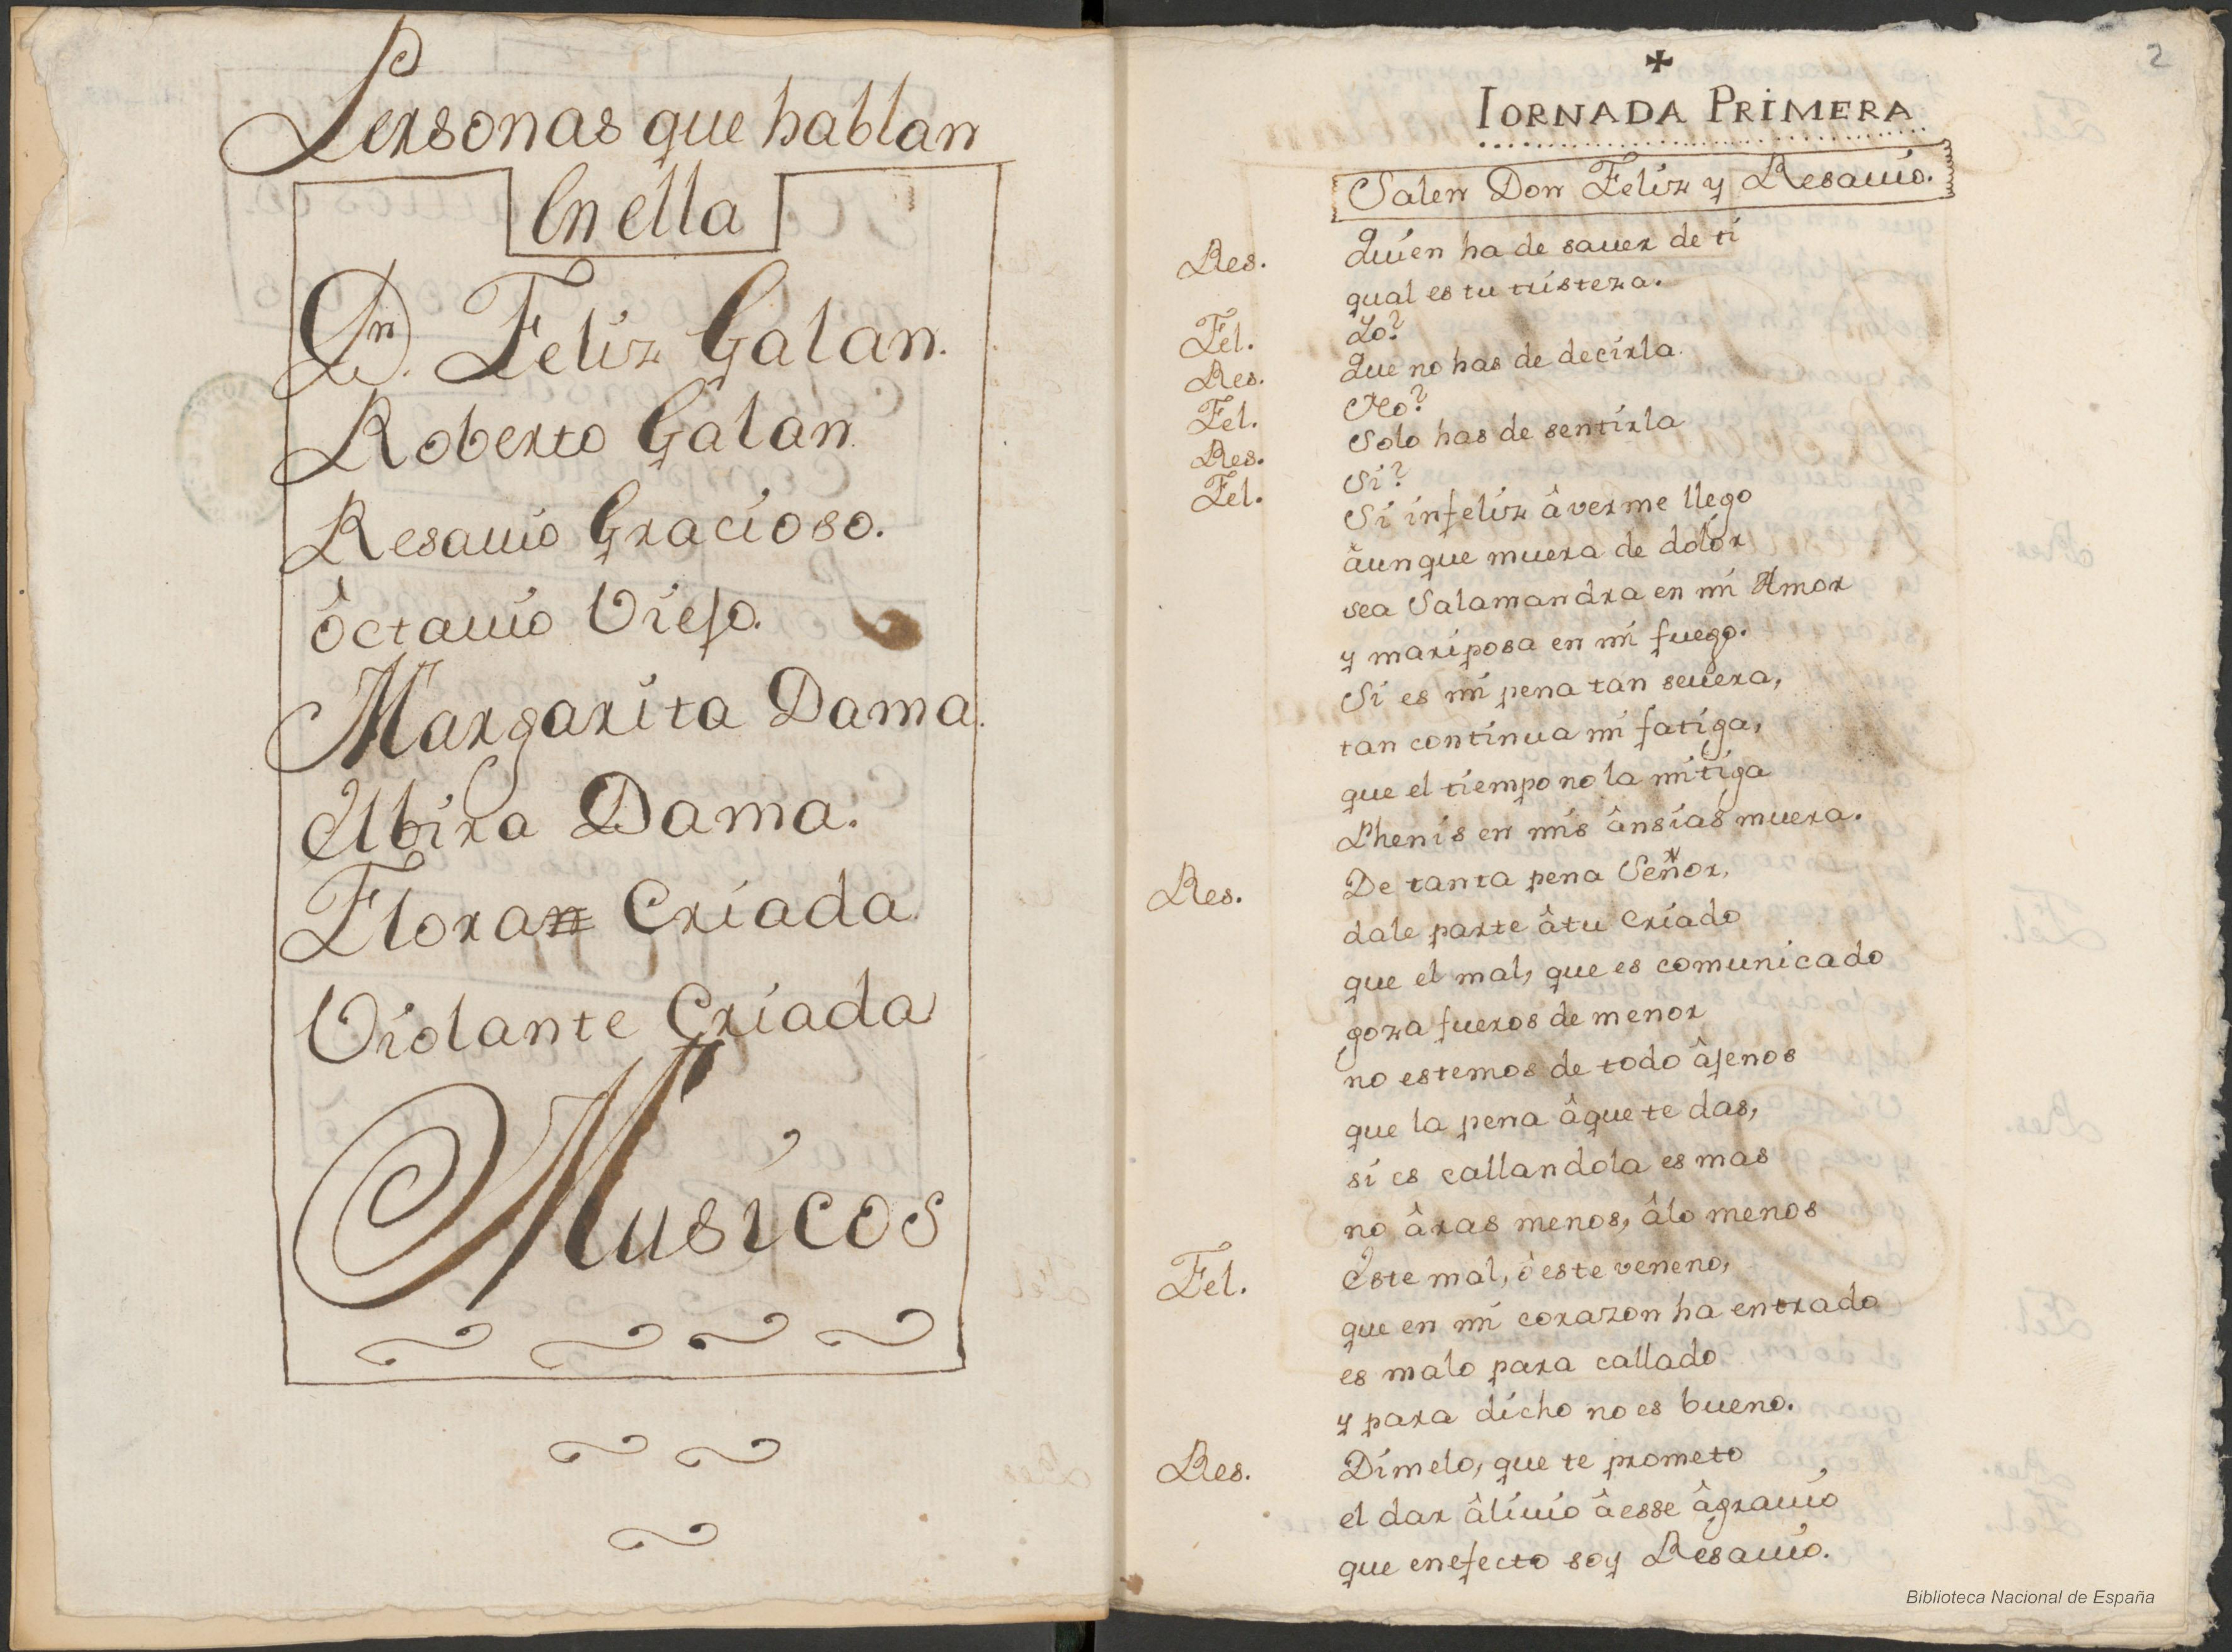 Personas que hablan
En ella
Dn. Feliz Galan.
Roberto Galan
Resauio Gracioso.
Octauio Viejo.
Margarita Dama.
Elbira Dama.
Flora Criada
Violante Criada
Musicos
2
IORNADA PRIMERA
Salen Don Feliz y Resauio.
Res. Quien ha de sauer de ti
qual es tu tristeza.
Fel. Yo?
Res. Que no has de decirla
Fel. No?
Res. Solo has de sentirla
Fel. Si?
Si infeliz â verme llego
âunque muera de dolor
sea Salamandra en mi Amor
y mariposa en mi fuego.
Si es mi pena tan seuera,
tan continua mi fatiga,
que el tiempo no la mitiga
Phenis en mis ânsias muera.
Res. De tanta pena Señor,
dale parte â tu Criado
que el mal, que es comunicado
goza fueros de menor
no estemos de todo âjenos
que la pena â que te das,
si es callandola es mas
no âras menos, âlo menos
Fel. Este mal, ô este veneno,
que en mi corazon ha entrado
es malo para callado
y para dicho no es bueno.
Res. Dimelo, que te prometo
el dar âliuio â esse âgrauio
que en efecto soy Resauio.
Biblioteca Nacional de España